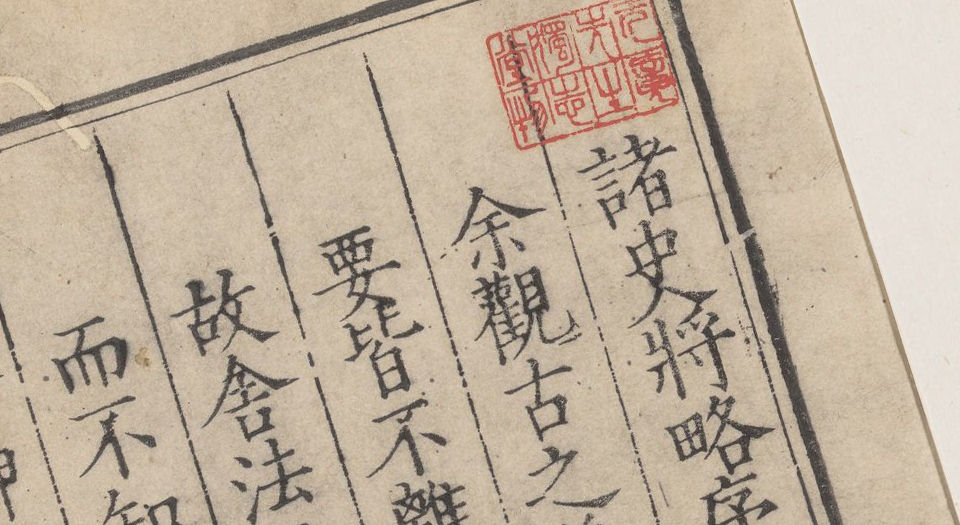 諸史將略序
余觀古之
要皆不離
故舍法
而不知